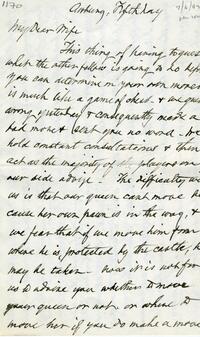 1170
Amburg, Fifth day
My Dear Wife
This thing of having to guess
what the other fellow is going to do before
you can determine on your own moves
is much like a game of chess. & we guessed
wrong yesterday & consequently made a
bad move & sent you no word. We
hold constant consultations & then
act as the majority of the players on
our side advise. The difficulty with
us is that our queen cant move be
cause her own pawn is in the way, &
we fear that if we move him from
where he is protected by the castle, he
may be taken. now it is not for
us to advise you whether to move
your queen or not or where to
move her if you do make a move